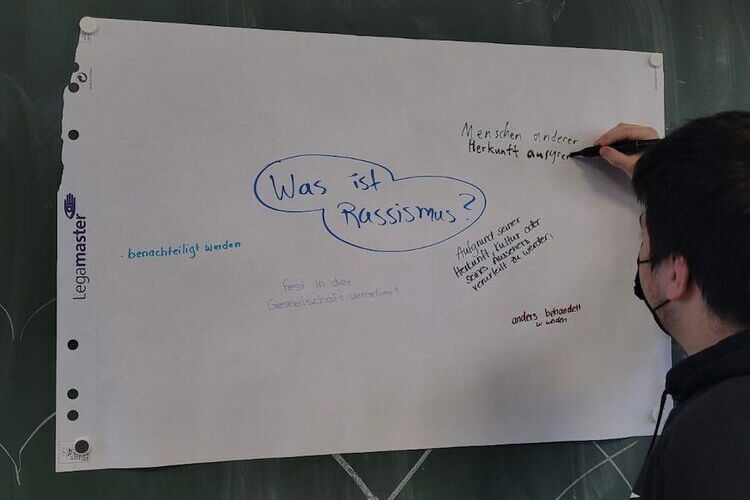 Legamaster
Was ist
Rassismus?
Menschen anderer
Herkunft ausgren
Aufgrund seiner
Herkunft, Kultur oder
seines Aussehens
verurteilt zu werden
· benachteiligt werden
fest in der
Gesellschaft verankert
anders behandelt
zu werden